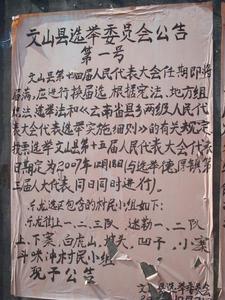 文山县选举委员会公告
第一号
文山县第十四届人民代表大会任期即将
届满，应进行换届选，根据宪法、地方组
织法、选举法和《云南省县乡两级人民代
表大会代表选举实施细则》的有关规定，
选举文山县第十五届人民代表大会代表
日期定为2007年12月18日（与选举德厚镇第
三届人大代表同日同时进行）。
选区包含的村民小组如下：
龙街上一、二、三队、一、二队
上、下寨、白虎山、坡头、凹子、小寨
冲村民小组
现予公告
文山县选举委员会